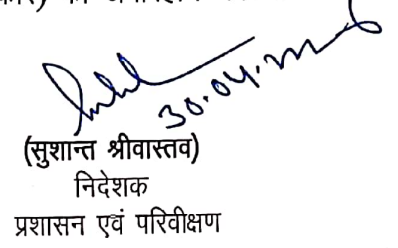 30.04.
(सुशान्त श्रीवास्तव)
निदेशक
प्रशासन एवं परिवीक्षण